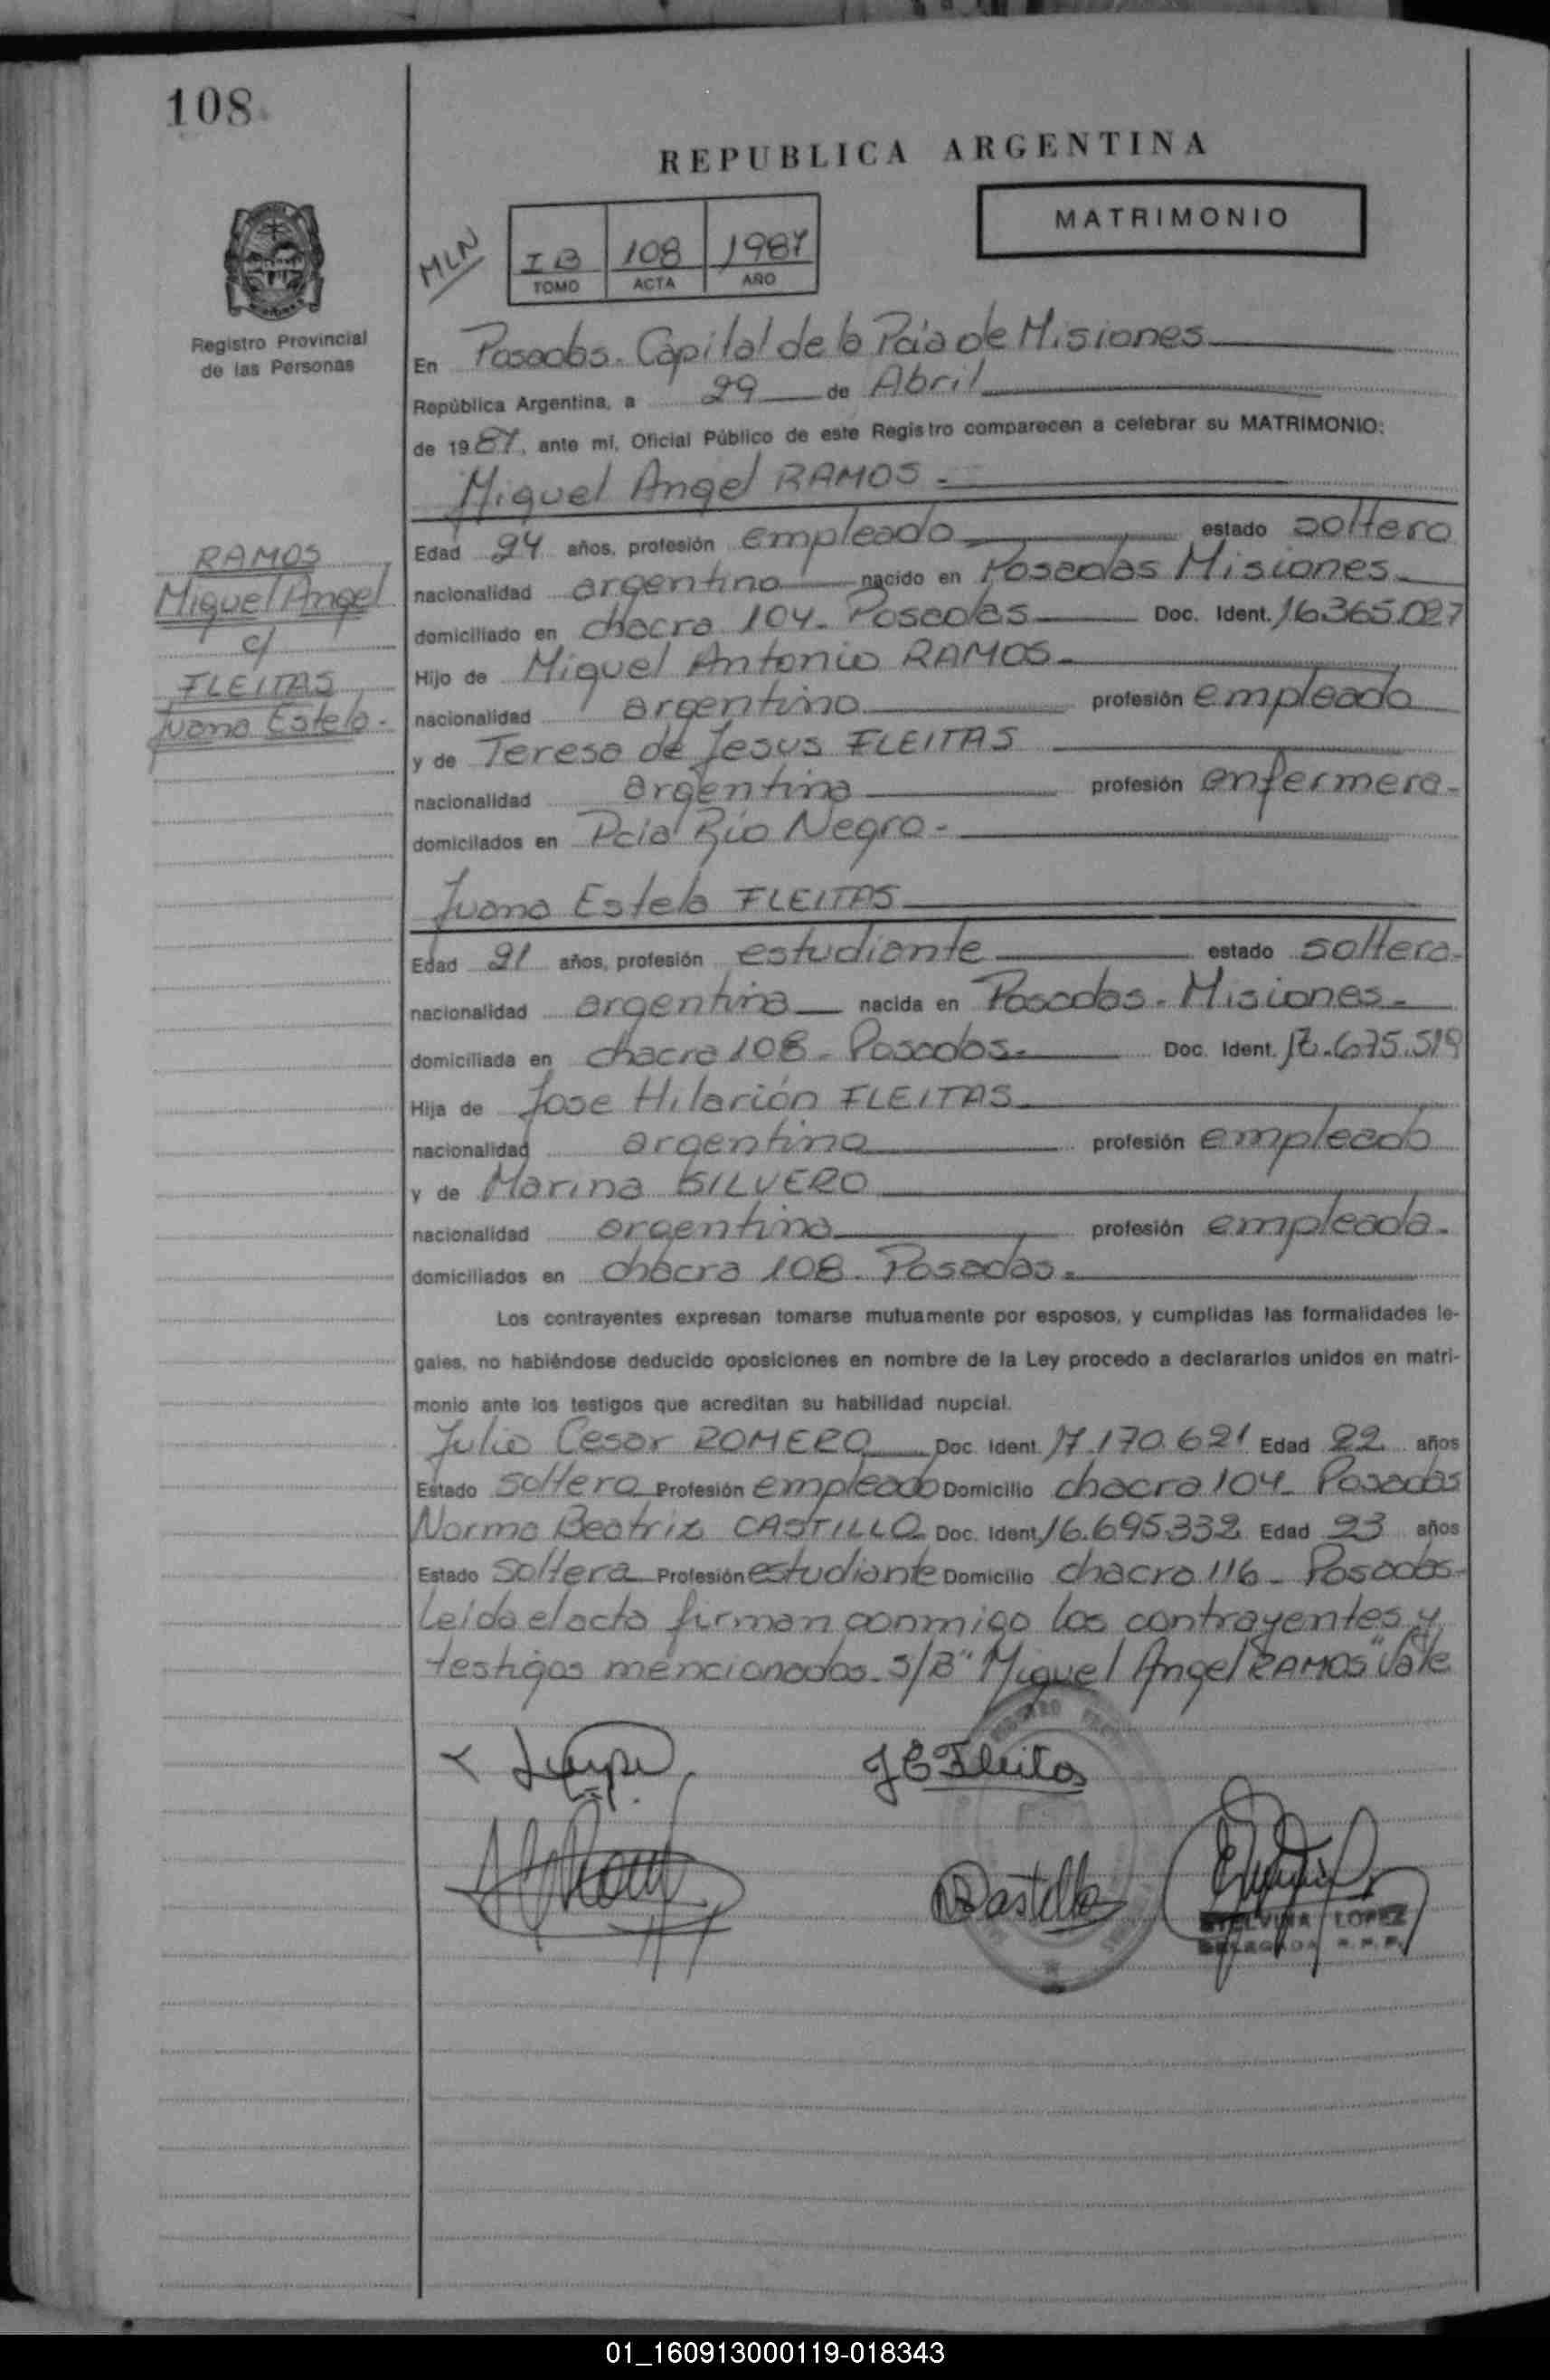 108
REPUBLICA ARGENTINA
MATRIMONIO
MLN
I B 108 1987
TOMO ACTA AÑO
Registro Provincial
de las Personas
En Posadas. Capital de la Pcia de Misiones
República Argentina, a 29 de Abril
de 1987, ante mí, Oficial Público de este Registro comparecen a celebrar su MATRIMONIO:
Miguel Angel RAMOS.
RAMOS
Miguel Angel
c/
FLEITAS
Juana Estela.
Edad 24 años, profesión empleado estado soltero
nacionalidad argentino nacido en Posadas Misiones.
domiciliado en chacra 104. Posadas Doc. Ident. 16365.027
Hijo de Miguel Antonio RAMOS.
nacionalidad argentino profesión empleado
y de Teresa de Jesus FLEITAS
nacionalidad argentina profesión enfermera.
domicilados en Pcia Rio Negro.
Juana Estela FLEITAS
Edad 21 años, profesión estudiante estado soltera.
nacionalidad argentina nacida en Posadas. Misiones.
domiciliada en chacra 108. Posadas. Doc. Ident. 17.675.519
Hija de Jose Hilarión FLEITAS
nacionalidad argentino profesión empleado
y de Marina SILVERO
nacionalidad argentina profesión empleada.
domiciliados en chacra 108. Posadas.
Los contrayentes expresan tomarse mutuamente por esposos, y cumplidas las formalidades le-
gales, no habiéndose deducido oposiciones en nombre de la Ley procedo a declararlos unidos en matri-
monio ante los testigos que acreditan su habilidad nupcial.
Julio Cesar ROMERO Doc. Ident. 17.170.621 Edad 22 años
Estado soltero Profesión empleado Domicilio chacra 104. Posadas
Norma Beatriz CASTILLO Doc. Ident. 16.695.332 Edad 23 años
Estado soltera Profesión estudiante Domicilio chacra 116. Posadas.
Leida el acta firman conmigo los contrayentes y
testigos mencionados. S/B "Miguel Angel RAMOS" Vale
J E Fleitas
NBCastillo
ETELVINA LOPEZ
DELEGADA R. P. P.
01_160913000119-018343